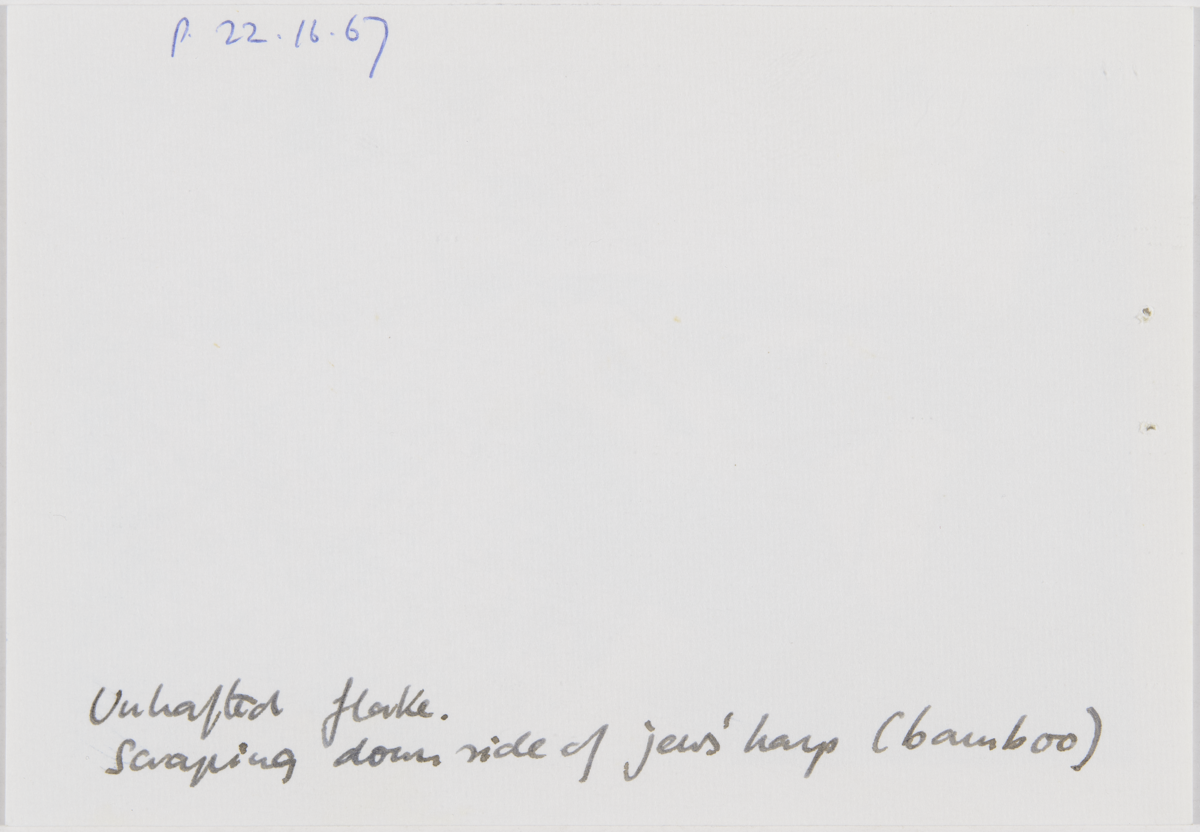 P. 22.16.67
Unhafted flake.
Scraping down side of jews' harp (bamboo)